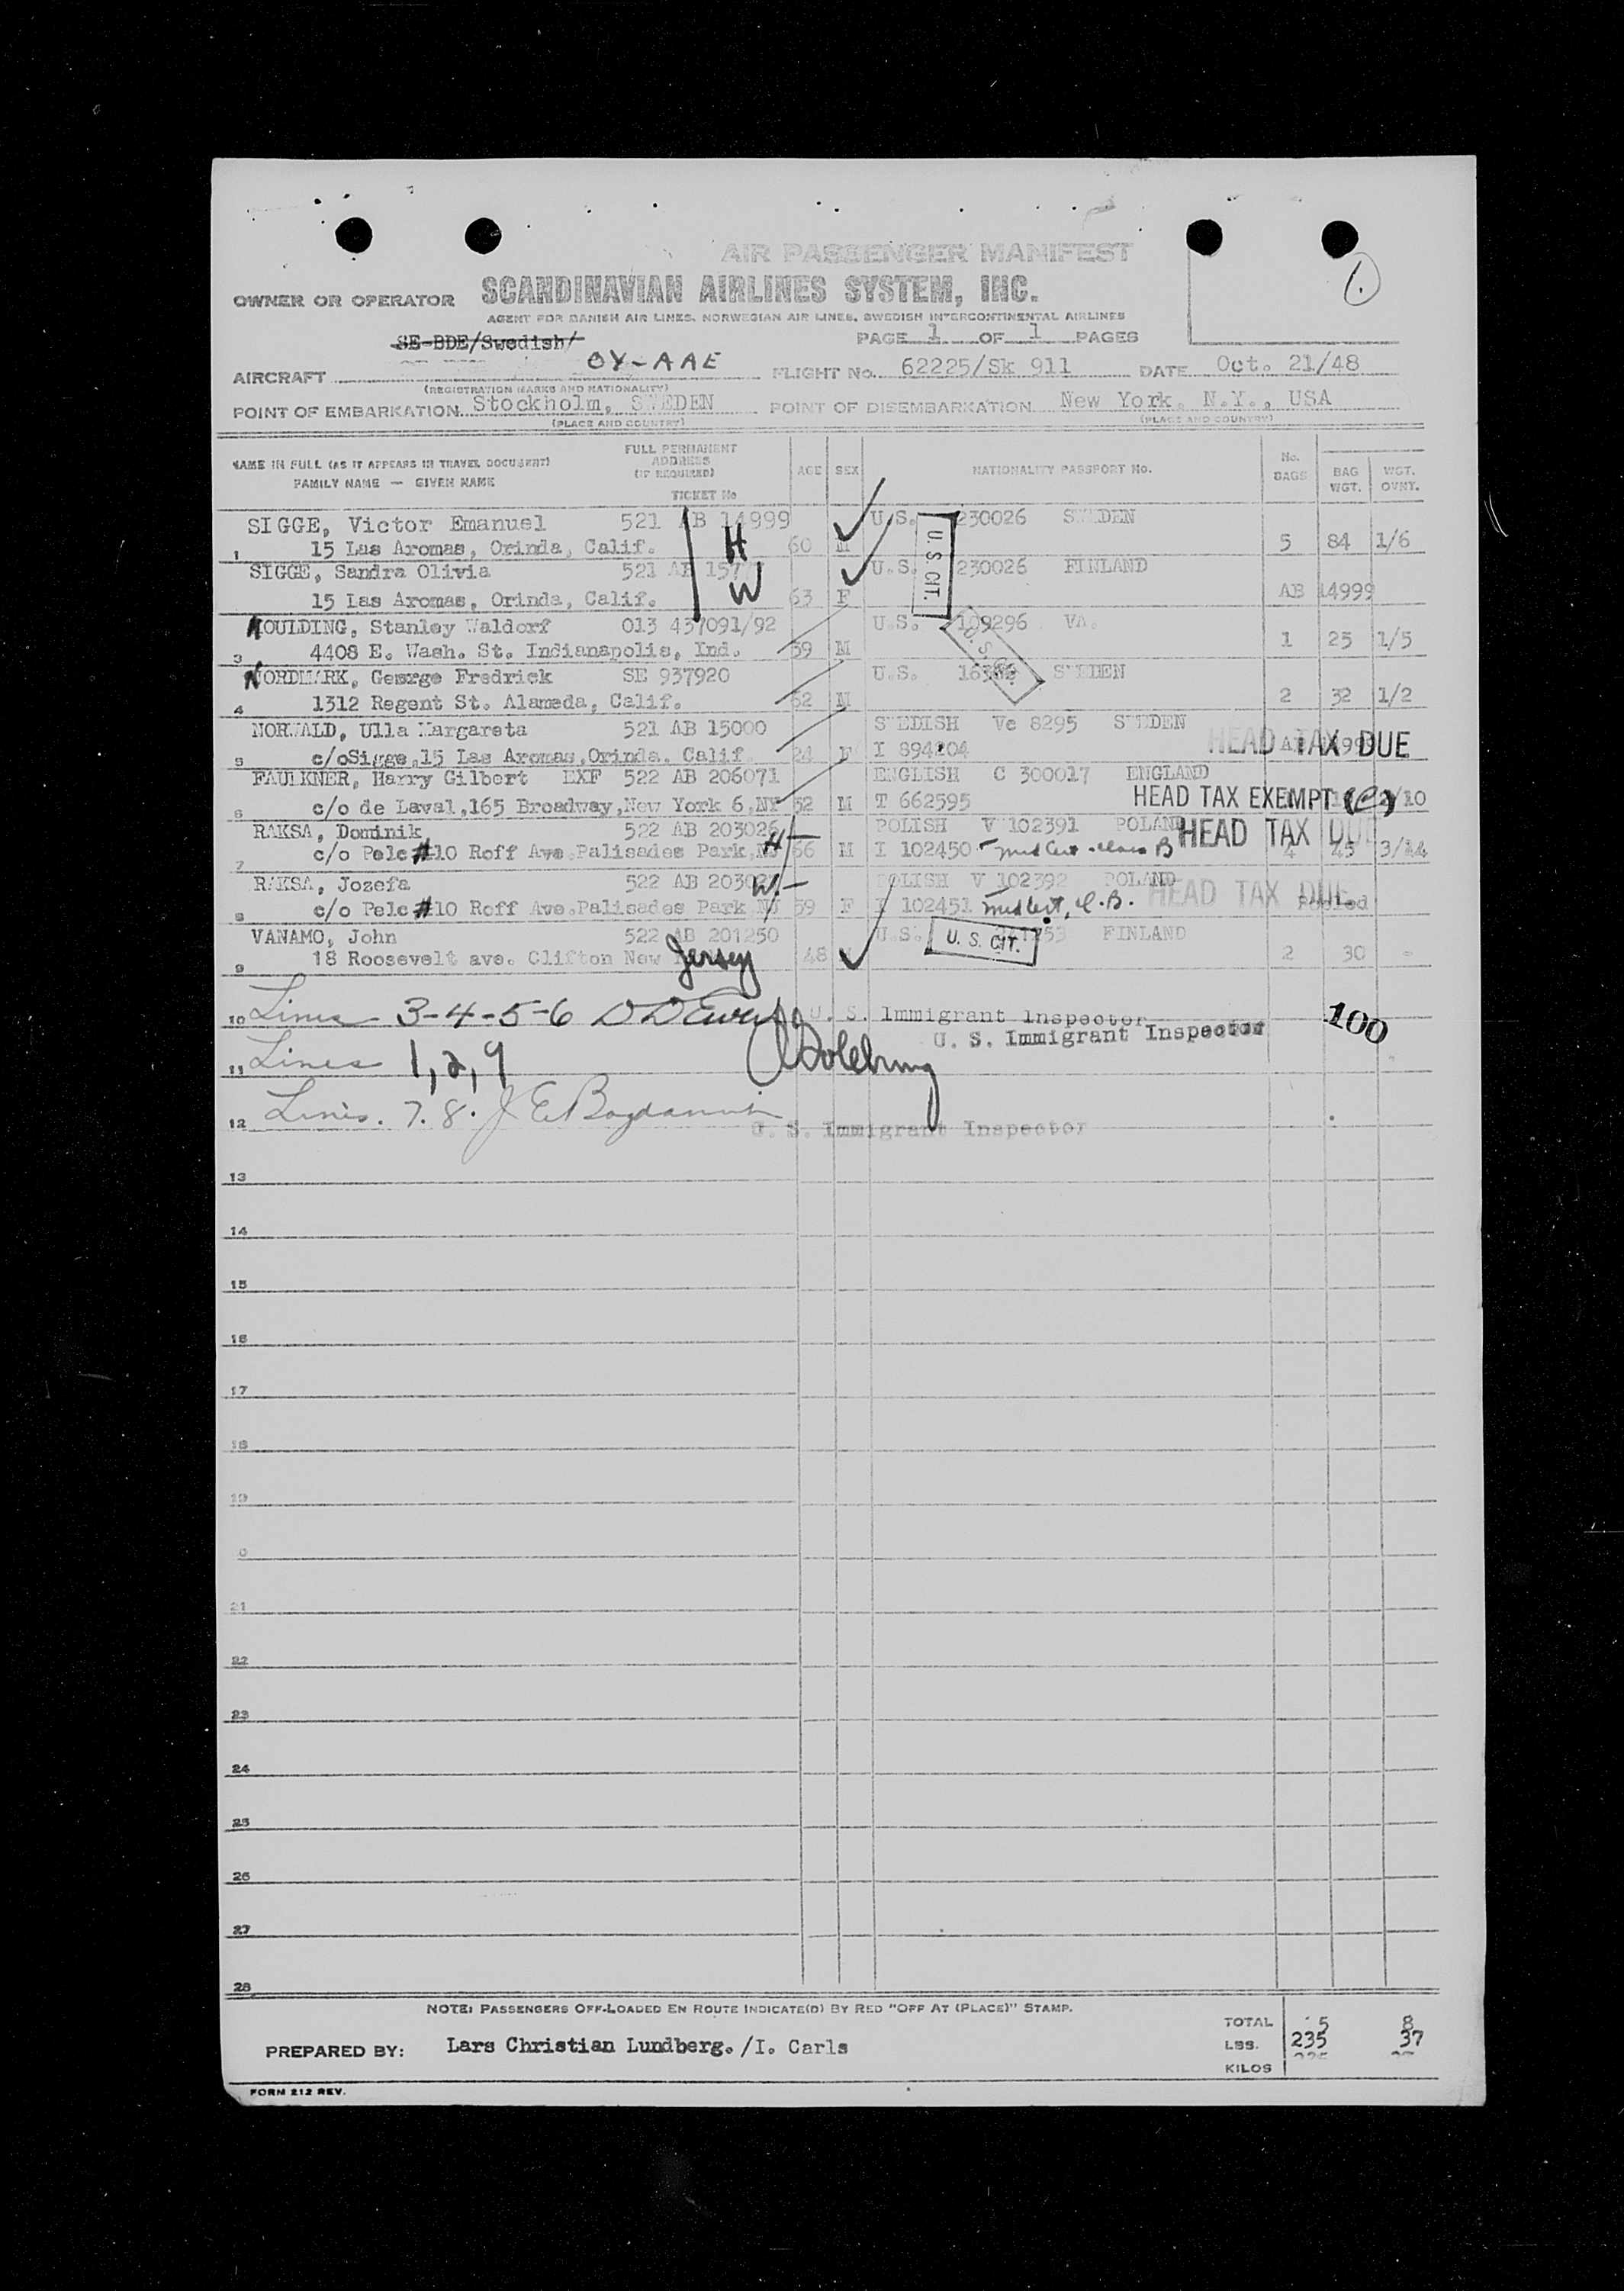 AIR PASSENGER MANIFEST
OWNER OR OPERATOR SCANDINAVIAN AIRLINES SYSTEM, INC.
AGENT FOR DANISH AIR LINES, NORWEGIAN AIR LINES, SWEDISH INTERCONTINENTAL AIRLINES
1
SE-BDE/Swedish/
PAGE 1 OF 1 PAGES
AIRCRAFT OY-AAE FLIGHT No. 62225/Sk 911 DATE Oct. 21/48
(REGISTRATION MARKS AND NATIONALITY)
POINT OF EMBARKATION Stockholm, SWEDEN POINT OF DISEMBARKATION New York, N.Y., USA
(PLACE AND COUNTRY) (PLACE AND COUNTRY)
NAME IN FULL (AS IT APPEARS IN TRAVEL DOCUMENT)
FAMILY NAME — GIVEN NAME
FULL PERMANENT
ADDRESS
(IF REQUIRED)
TICKET No
AGE SEX NATIONALITY PASSPORT No. No. BAGS BAG WGT. WGT. OVNT.
SIGGE, Victor Emanuel 521 AB 14999 U.S. 230026 SWEDEN
1 15 Las Aromas, Orinda, Calif. H 60 M 5 84 1/6
SIGGE, Sandra Olivia 521 AB U.S. 230026 FINLAND
15 Las Aromas, Orinda, Calif. W 63 F AB 14999
U.S. CIT.
MOULDING, Stanley Waldorf 013 437091/92 U.S. 109296 VA.
3 4408 E. Wash. St. Indianapolis, Ind. 59 M 1 25 1/5
NORDMARK, George Fredrick SE 937920 U.S. SWEDEN
4 1312 Regent St. Alameda, Calif. 52 M 2 32 1/2
NORWALD, Ulla Margareta 521 AB 15000 SWEDISH Ve 8295 SWEDEN
5 c/oSigge,15 Las Aromas,Orinda. Calif 24 F I 894204 HEAD TAX DUE
FAULKNER, Harry Gilbert EXF 522 AB 206071 ENGLISH C 300017 ENGLAND
6 c/o de Laval,165 Broadway,New York 6,NY 52 M T 662595 HEAD TAX EXEMPT (e) 2/10
RAKSA, Dominik 522 AB 203026 POLISH V 102391 POLAND HEAD TAX DUE
7 c/o Pelc #10 Roff Ave.Palisades Park NJ H 66 M I 102450 med cert class B 4 45 3/14
RAKSA, Jozefa 522 AB 203027 POLISH V 102392 POLAND HEAD TAX DUE
8 c/o Pelc #10 Roff Ave.Palisades Park NJ W. 59 F I 102451 med cert, C.B. Pooled
VANAMO, John 522 AB 201250 U.S. FINLAND
U. S. CIT.
9 18 Roosevelt ave. Clifton New Jersey 48 2 30
10 Lines 3-4-5-6 U. S. Immigrant Inspector
U. S. Immigrant Inspector 100
11 Lines 1,2,9
12 Lines. 7. 8. J E
U. S. Immigrant Inspector
13
14
15
16
17
18
19
0
21
22
23
24
25
26
27
28
NOTE: PASSENGERS OFF-LOADED EN ROUTE INDICATE(D) BY RED "OFF AT (PLACE)" STAMP.
PREPARED BY: Lars Christian Lundberg. /I. Carls
TOTAL 5 8
LBS. 235 37
KILOS
FORM 212 REV.